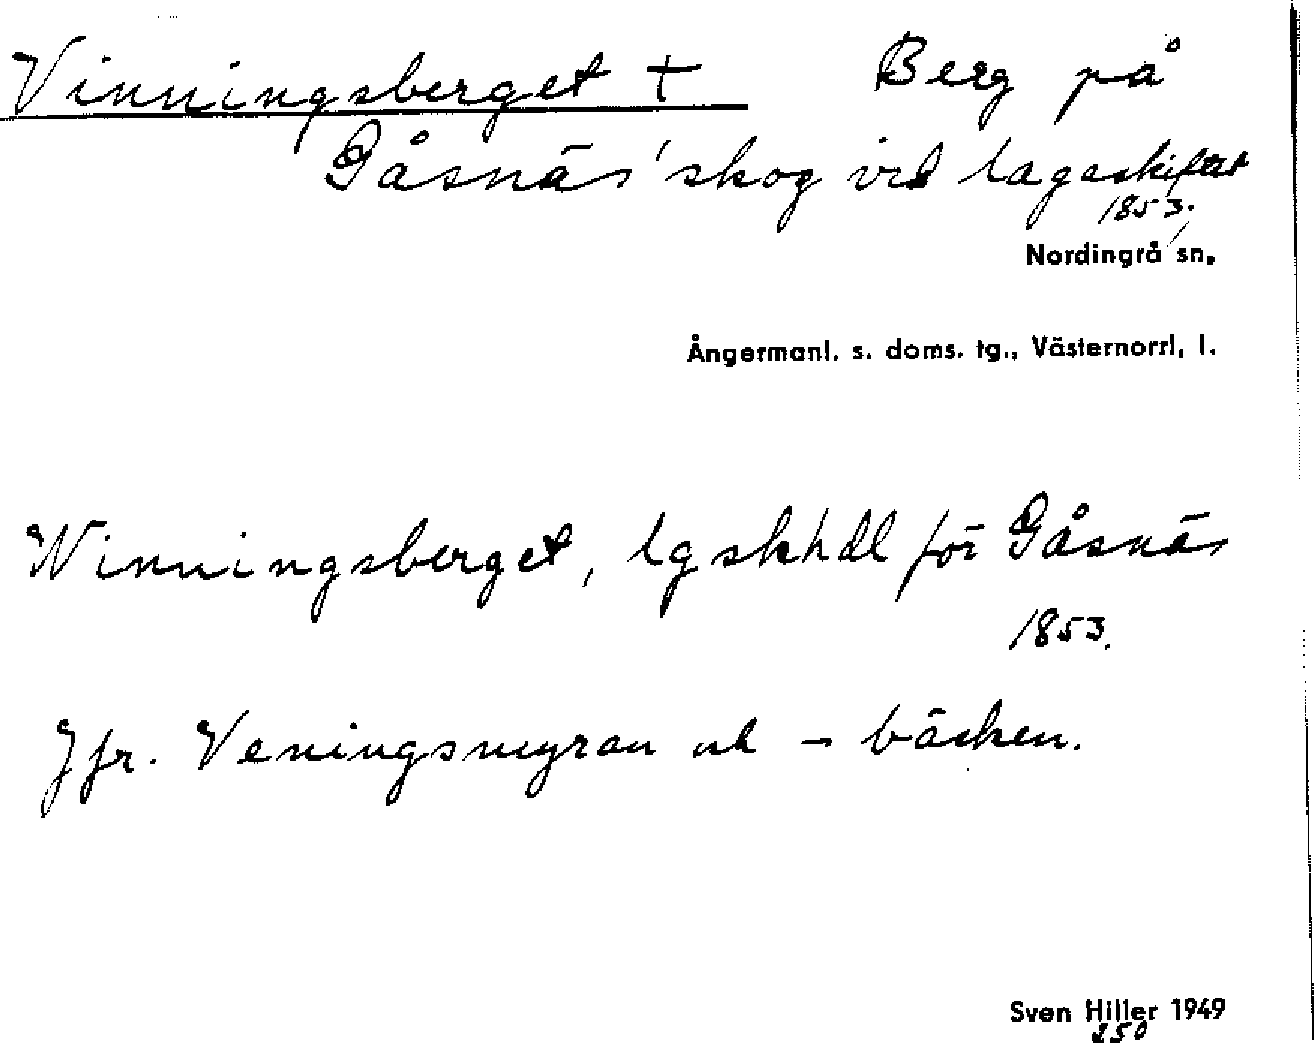 Vinningsberget + Berg på
Gåsnäs' skog vid lagaskiftet
1853.
Nordingrå sn.
Ångermanl. s. doms. tg., Västernorrl. l.
Winningsberget, lgskhdl för Gåsnäs
1853.
Jfr. Veningsmyran ok - bäcken.
Sven Hiller 1949
250